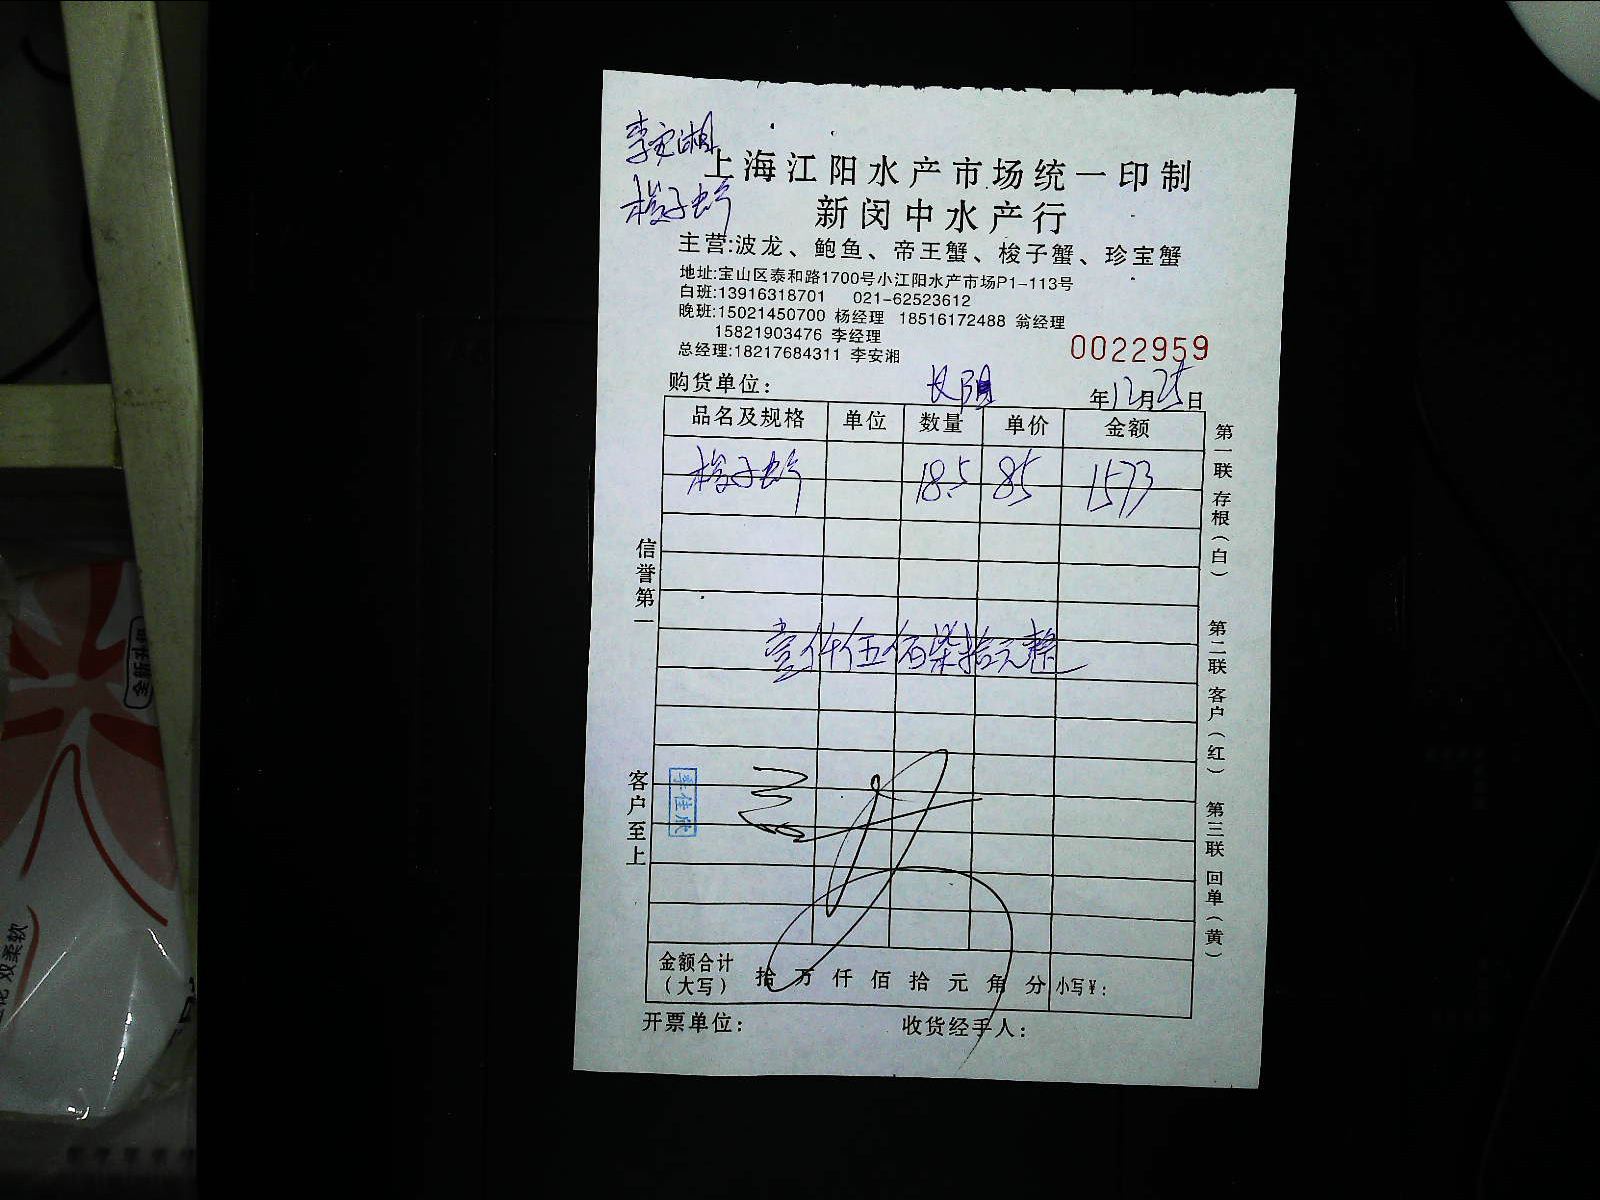 李安湘
梭子蟹
上海江阳水产市场统一印制
新闵中水产行
主营:波龙、鲍鱼、帝王蟹、梭子蟹、珍宝蟹
地址:宝山区泰和路1700号小江阳水产市场P1-113号
白班:13916318701 021-62523612
晚班:15021450700 杨经理 18516172488 翁经理
15821903476 李经理
总经理:18217684311 李安湘
0022959
购货单位: 长阳 年12月25日
品名及规格 单位 数量 单价 金额
梭子蟹 18.5 85 1573
壹仟伍佰柒拾元整
信誉第一
客户至上
李佳欣
第一联 存根(白)
第二联 客户(红)
第三联 回单(黄)
金额合计
(大写) 拾 万 仟 佰 拾 元 角 分 小写¥:
开票单位: 收货经手人:
双柔软